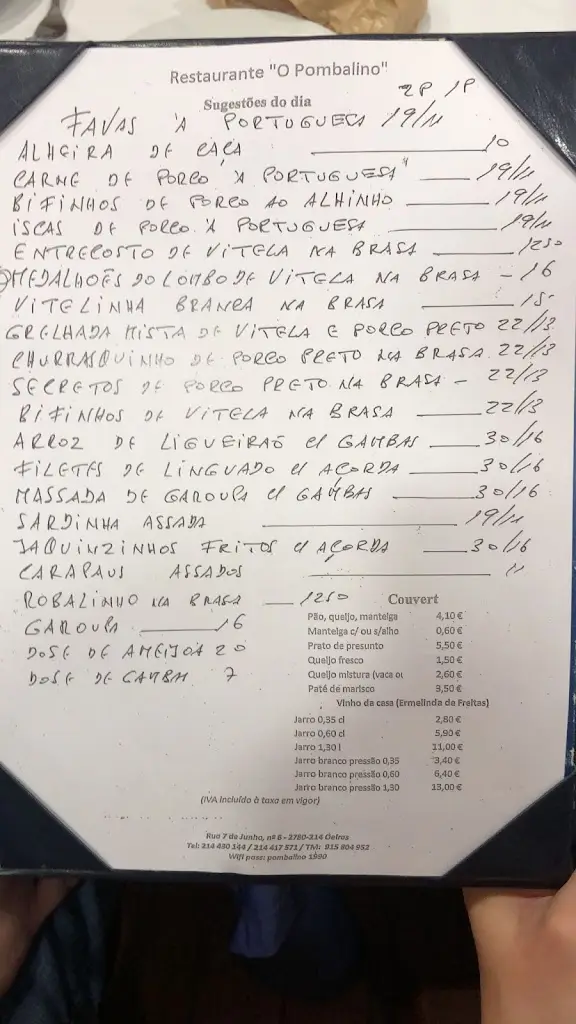 Restaurante "O Pombalino"
Sugestões do dia
2P 1P
FAVAS À PORTUGUESA 19/11
ALHEIRA DE CAÇA 10
CARNE DE PORCO À PORTUGUESA 19/11
BIFINHOS DE PORCO AO ALHINHO 19/11
ISCAS DE PORCO À PORTUGUESA 19/11
ENTRECOSTO DE VITELA NA BRASA 1250
MEDALHÕES DO LOMBO DE VITELA NA BRASA - 16
VITELINHA BRANCA NA BRASA 15-
GRELHADA MISTA DE VITELA E PORCO PRETO 22/13
CHURRASQUINHO DE PORCO PRETO NA BRASA. 22/13
SECRETOS DE PORCO PRETO NA BRASA - 22/13
BIFINHOS DE VITELA NA BRASA 22/13
ARROZ DE LIGUEIRAÕ C/ GAMBAS 30/16
FILETES DE LINGUADO C/ AÇORDA 30/16
MASSADA DE GAROUPA C/ GAMBAS 30/16
SARDINHA ASSADA 19/11
JAQUINZINHOS FRITOS C/ AÇORDA 30/16
CARAPAUS ASSADOS 11
ROBALINHO NA BRASA 1250
GAROUPA 16
DOSE DE AMEIJOA 20
DOSE DE GAMBA 7
Couvert
Pão, queijo, manteiga 4,10 €
Manteiga c/ ou s/alho 0,60 €
Prato de presunto 5,50 €
Queijo fresco 1,50 €
Queijo mistura (vaca ou 2,60 €
Paté de marisco 3,50 €
Vinho da casa (Ermelinda de Freitas)
Jarro 0,35 cl 2,80 €
Jarro 0,60 cl 5,90 €
Jarro 1,30 l 11,00 €
Jarro branco pressão 0,35 3,40 €
Jarro branco pressão 0,60 6,40 €
Jarro branco pressão 1,30 13,00 €
(IVA incluído à taxa em vigor)
Rua 7 de Junho, nº 6 - 2780-214 Oeiras
Tel: 214 430 144 / 214 417 571 / TM: 915 804 952
Wifi pass: pombalino 1990